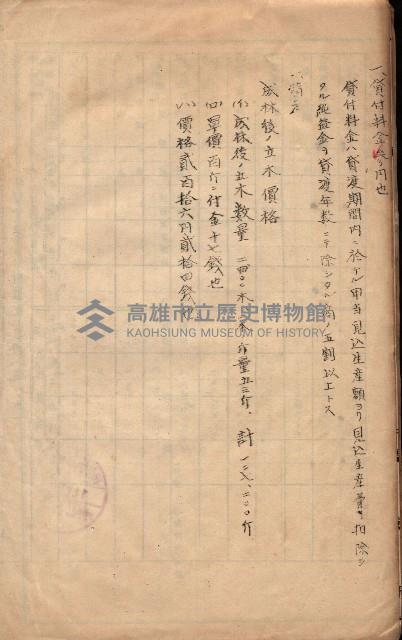 一、貸付料金 円也
貸付料金ハ貸渡期間内ニ於ケル甲当見込生産額ヨリ見込生産費ヲ扣除シ
タル純益金ヲ貸渡年数ニテ除シタル商ノ五割以上トス
成林後ノ立木價格
(イ)成林後ノ立木数量 二四〇〇本 斤量五三斤、計一二七、二〇〇斤
(ロ)單價百斤ニ付金十七錢也
(ハ)價格貳百拾六円貳拾四錢也
高雄市立歷史博物館
KAOHSIUNG MUSEUM OF HISTORY